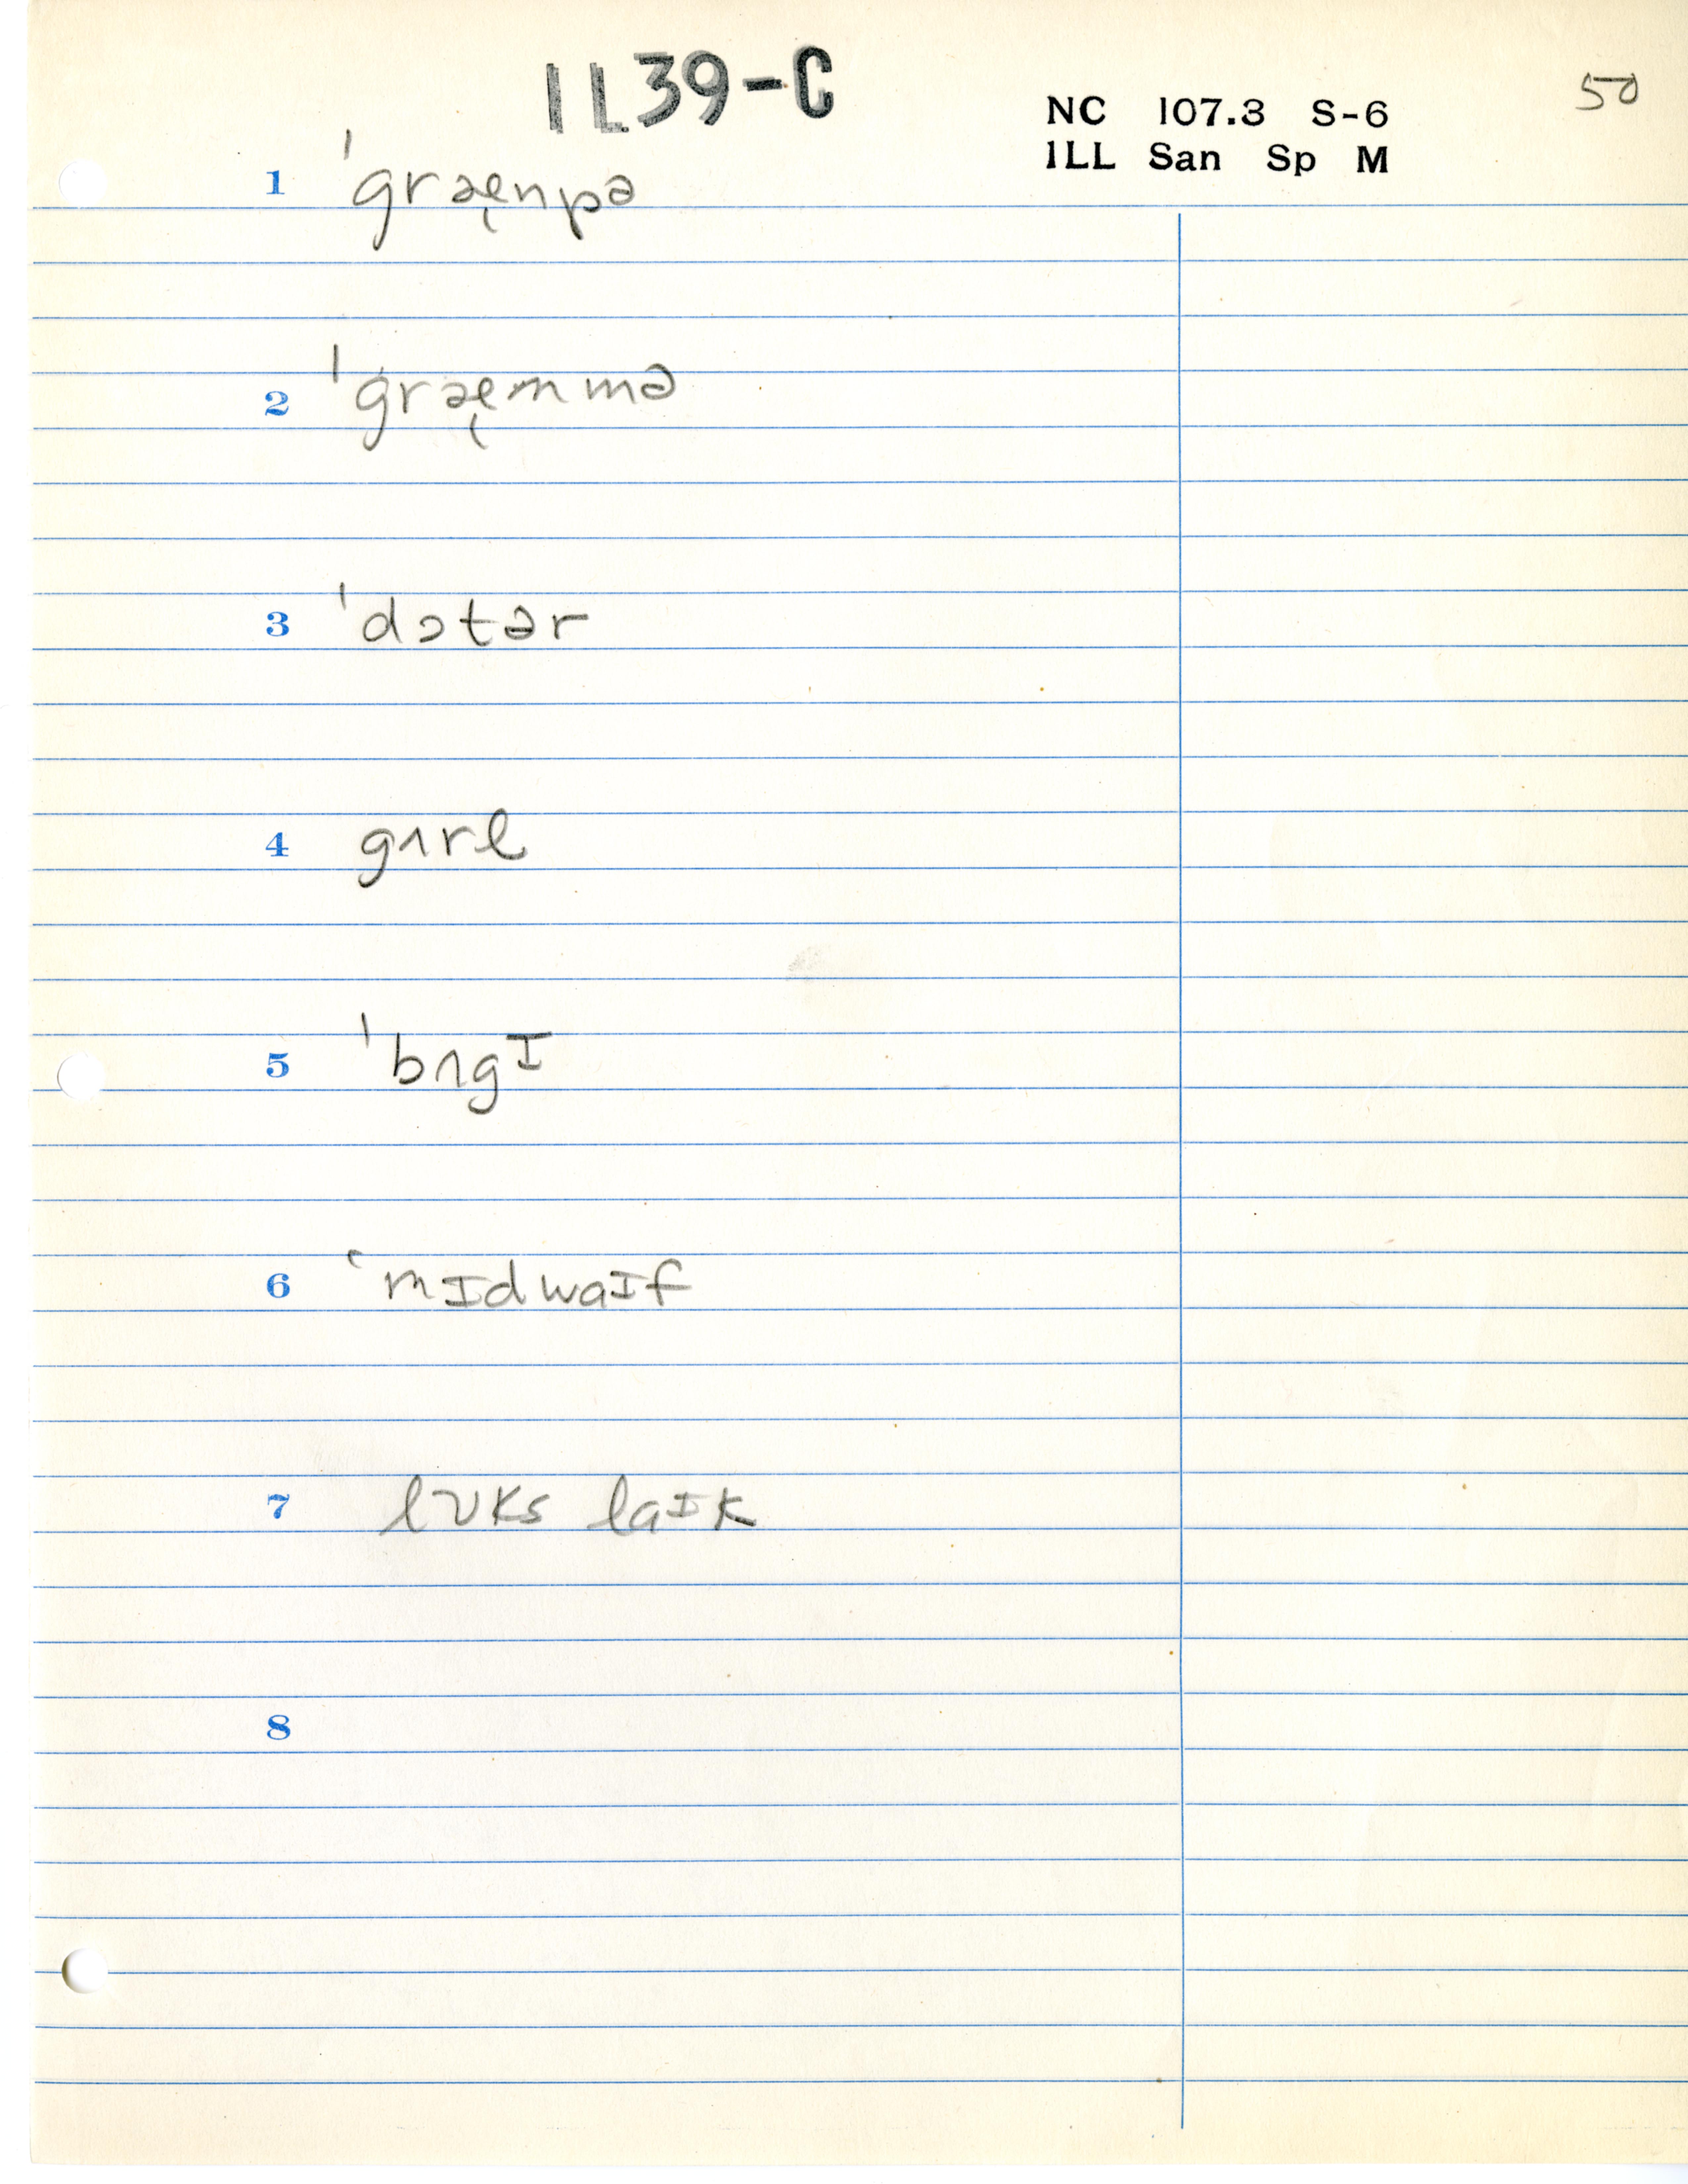 IL39-C
NC 107.3 S-6
ILL San Sp M
50
1 ˈgræ̨npə
2 ˈgræ̨mmə
3 ˈdɔtər
4 gʌrl
5 ˈbʌgɪ
6 ˈmɪdwaɪf
7 lʊks laɪk
8